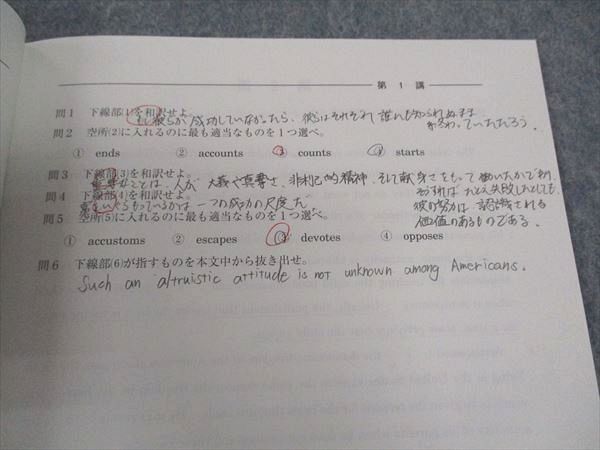 第 1 講
問1 下線部(1)を和訳せよ。
もし彼らが成功していなかったら、彼らはそれぞれ誰にも知られぬまま
終わっていただろう。
問2 空所(2)に入れるのに最も適当なものを1つ選べ。
① ends ② accounts ③ counts ④ starts
問3 下線部(3)を和訳せよ。
重要なことは、人が大義や真摯さ、非利己的精神、そして献身さをもって働いたかであり、
そうすれば たとえ失敗したとしても、
彼の努力は 認識される
価値のあるものである。
問4 下線部(4)を和訳せよ。
いくらもっているかは 一つの成功の尺度だ
問5 空所(5)に入れるのに最も適当なものを1つ選べ。
① accustoms ② escapes ③ devotes ④ opposes
問6 下線部(6)が指すものを本文中から抜き出せ。
Such an altruistic attitude is not unknown among Americans.